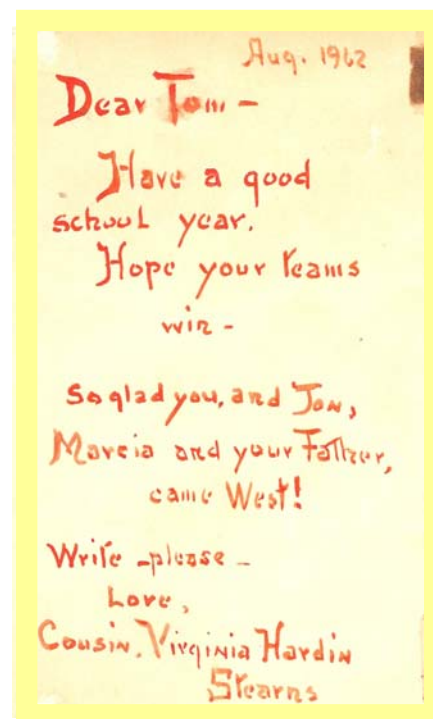 Aug. 1962
Dear Tom -
Have a good
school year.
Hope your teams
win -
So glad you, and Jon,
Marcia and your Father,
came West!
Write - please -
Love,
Cousin, Virginia Hardin
Stearns